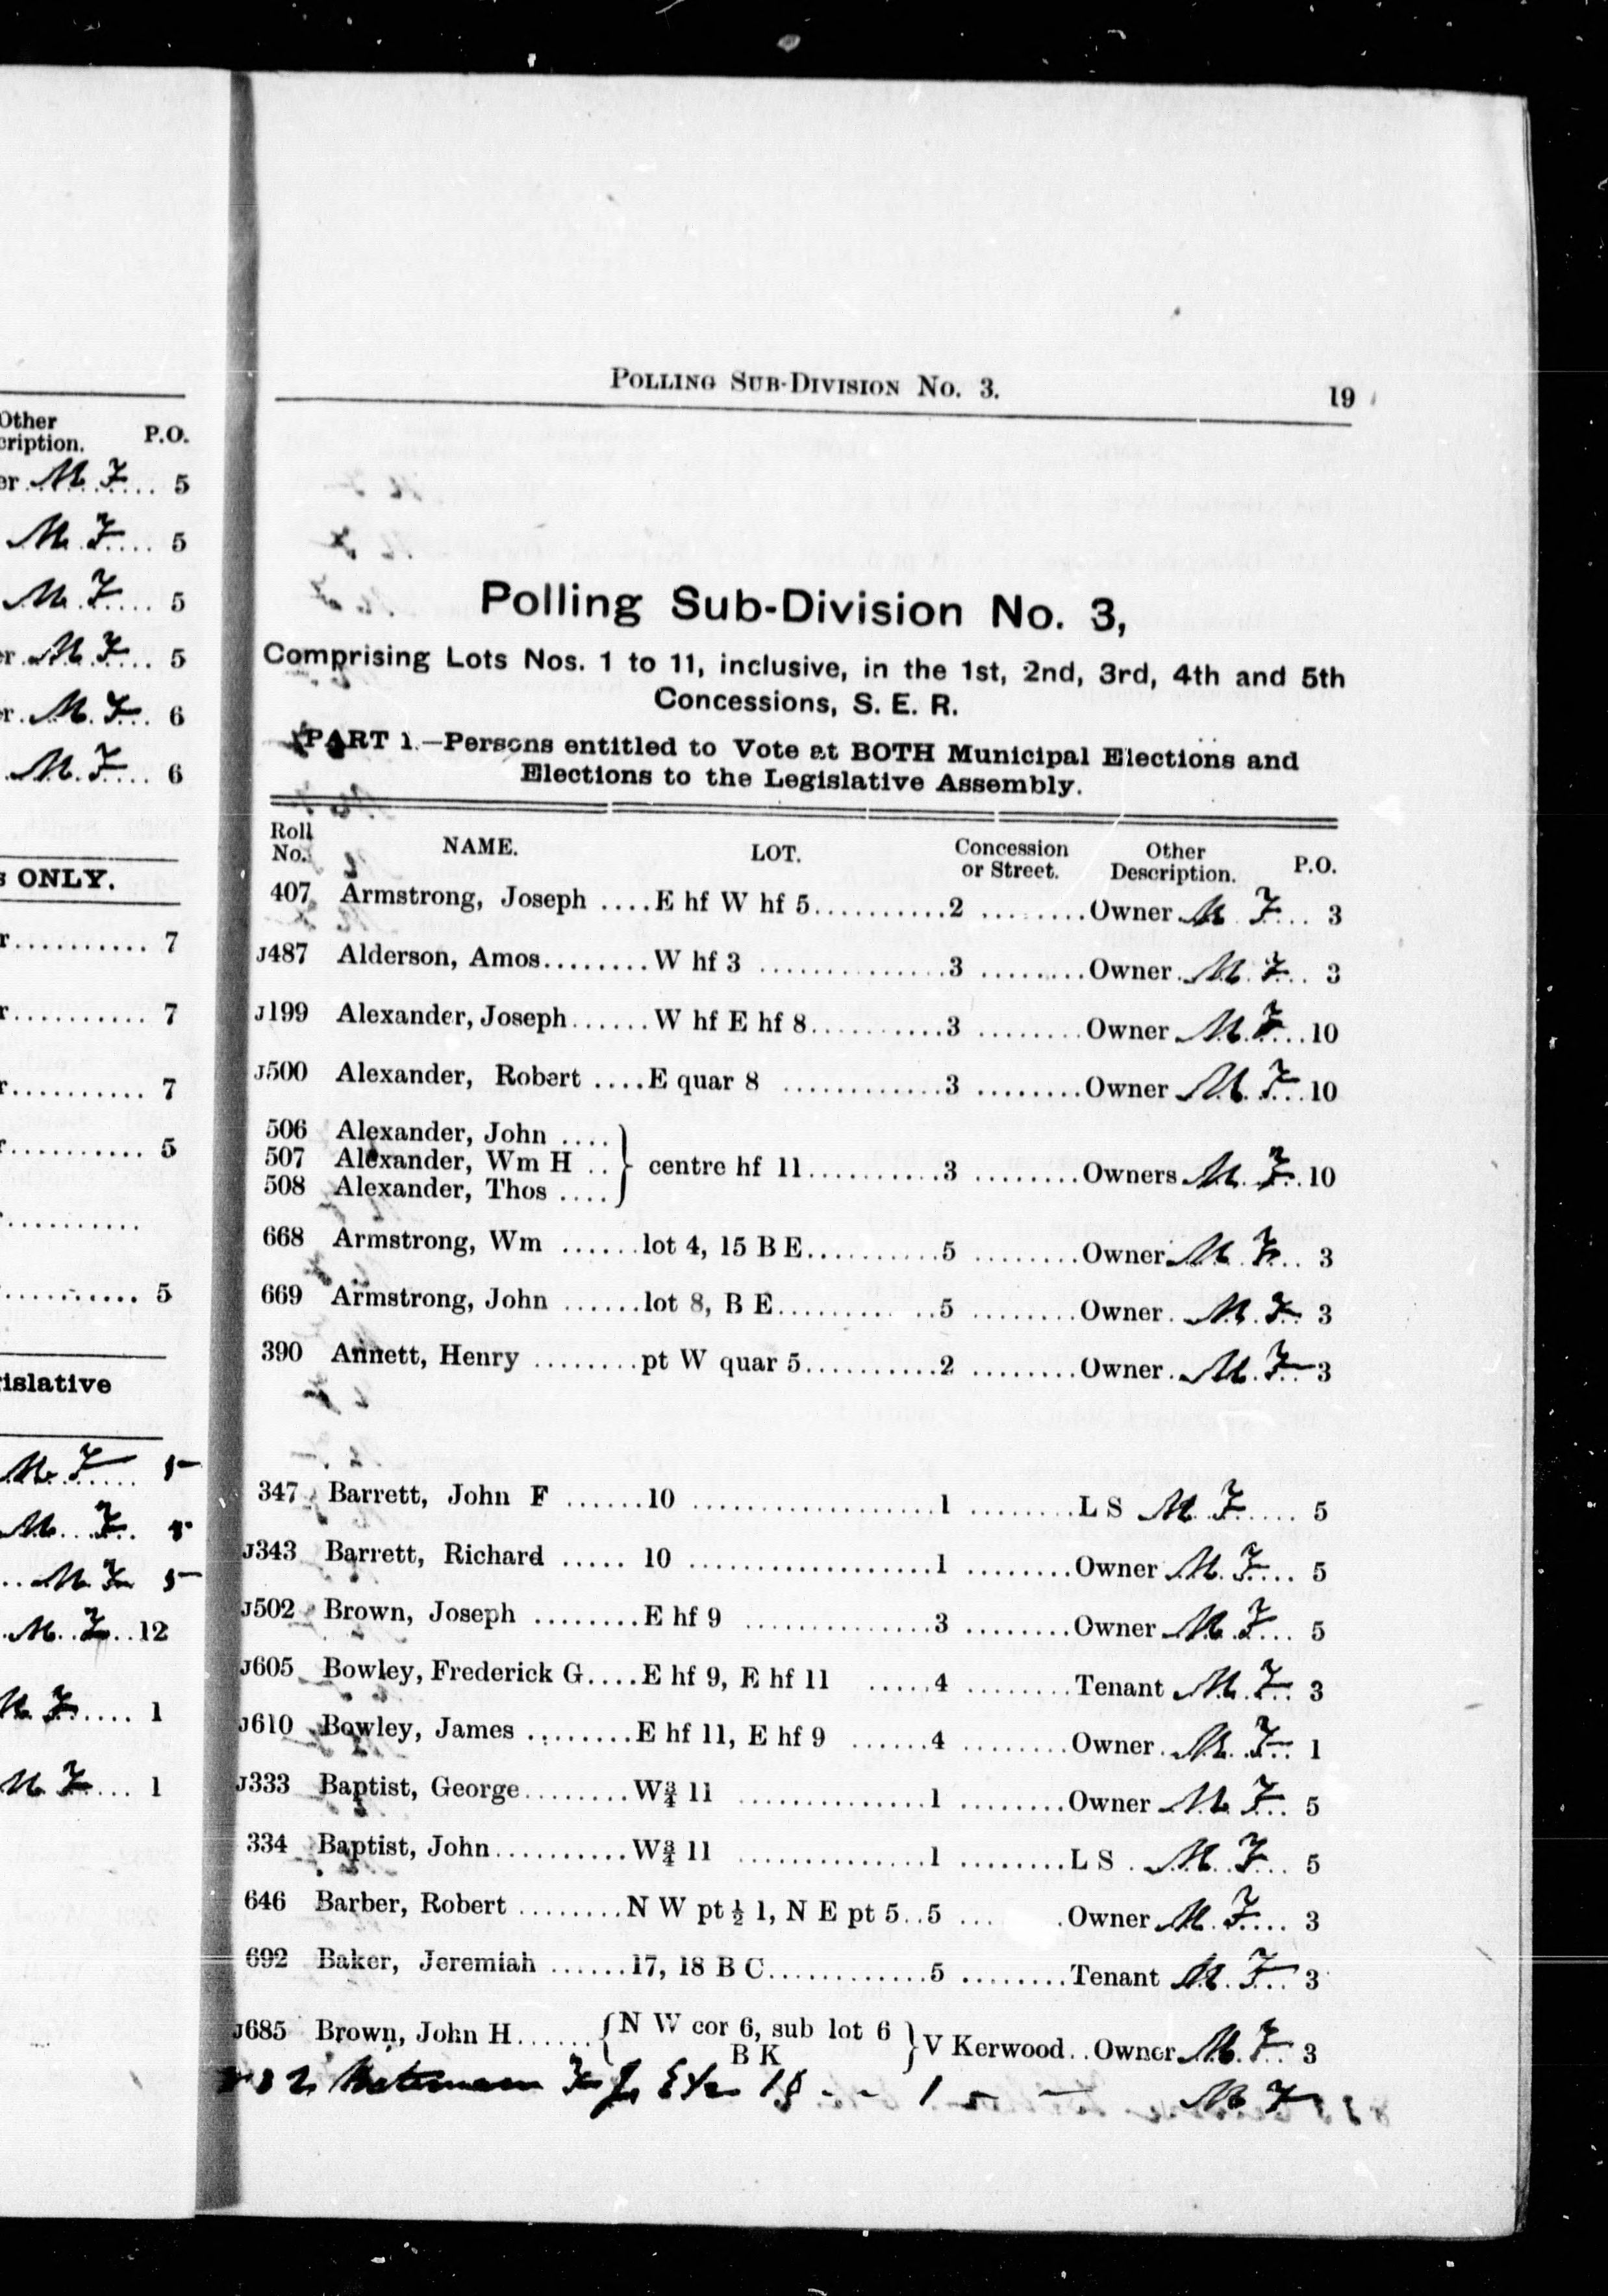 Other
cription. P.O.
er M. F. 5
M. F. 5
M. F. 5
er M. F. 5
r. M. F. 6
M. F. 6
s ONLY.
r 7
r 7
r 7
r 5
r
5
islative
M. F. 5
M. F. 5
M. F. 5
M. F. 12
M. F. 1
M. F. 1
POLLING SUB-DIVISION NO. 3. 19
Polling Sub-Division No. 3,
Comprising Lots Nos. 1 to 11, inclusive, in the 1st, 2nd, 3rd, 4th and 5th
Concessions, S. E. R.
PART 1.—Persons entitled to Vote at BOTH Municipal Elections and
Elections to the Legislative Assembly.
Roll No. NAME. LOT. Concession or Street. Other Description. P.O.
407 Armstrong, Joseph ....E hf W hf 5..........2 ........Owner M F... 3
J487 Alderson, Amos........W hf 3 .............3 ........Owner M. F... 3
J199 Alexander, Joseph......W hf E hf 8..........3 ........Owner M. F...10
J500 Alexander, Robert ....E quar 8 ............3 ........Owner M. F...10
506 Alexander, John ....
507 Alexander, Wm H .. } centre hf 11..........3 ........Owners M. F..10
508 Alexander, Thos ....
668 Armstrong, Wm ......lot 4, 15 B E..........5 ........Owner M. F... 3
669 Armstrong, John ......lot 8, B E............5 ........Owner. M. F.. 3
390 Annett, Henry ........pt W quar 5..........2 ........Owner. M. F. 3
347 Barrett, John F ......10 ..................1 ........L S M. F..... 5
J343 Barrett, Richard ..... 10 ..................1 ........Owner M. F.... 5
J502 Brown, Joseph ........E hf 9 ..............3 ........Owner M. F... 5
J605 Bowley, Frederick G....E hf 9, E hf 11 .....4 ........Tenant M. F.. 3
J610 Bowley, James ........E hf 11, E hf 9 ......4 ........Owner. M. F.. 1
J333 Baptist, George........W¾ 11 ..............1 ........Owner M. F... 5
334 Baptist, John..........W¾ 11 ..............1 ........L S . M. F... 5
646 Barber, Robert ........N W pt ½ 1, N E pt 5..5 ... .Owner M. F.... 3
692 Baker, Jeremiah ......17, 18 B C............5 ........Tenant M. F... 3
J685 Brown, John H...... { N W cor 6, sub lot 6 B K } V Kerwood..Owner M. F.. 3
Bateman F J. E½ - - 1 5 — M F